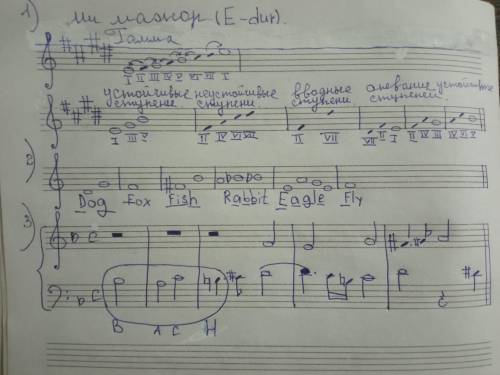 1) ми мажор (E-dur).
Гамма
I II III IV V VI VII I
устойчивые неустойчивые вводные опевание устойчивых
ступени. ступени. ступени. ступеней.
I III V II IV VI VII II VII VII II I II IV III IV VI V
2)
Dog Fox Fish Rabbit Eagle Fly
3)
C
C
B A C H